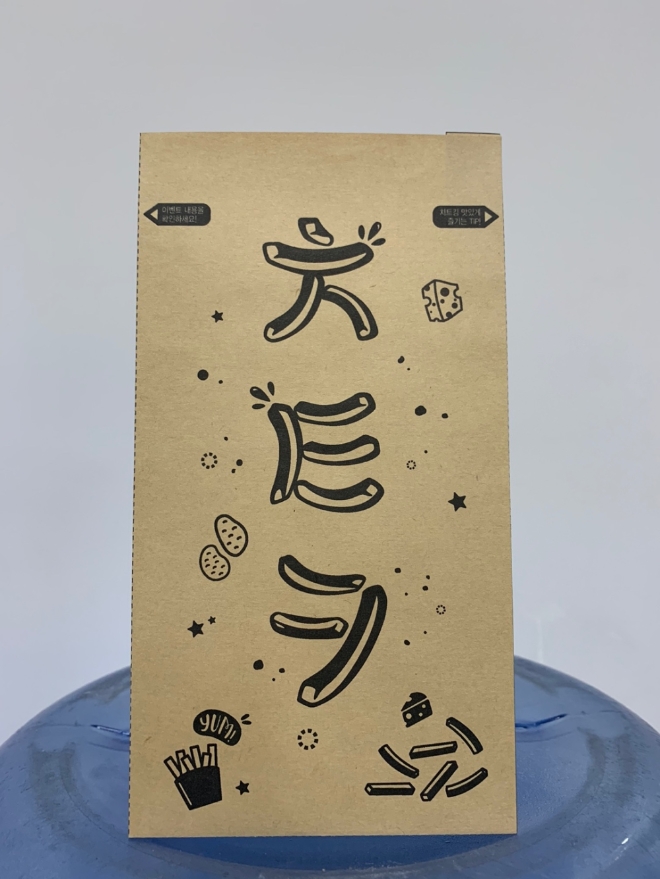 이벤트 내용을
확인하세요!
치트킹 맛있게
즐기는 TIP!
ㅊ
ㅌ
ㅋ
YUM!